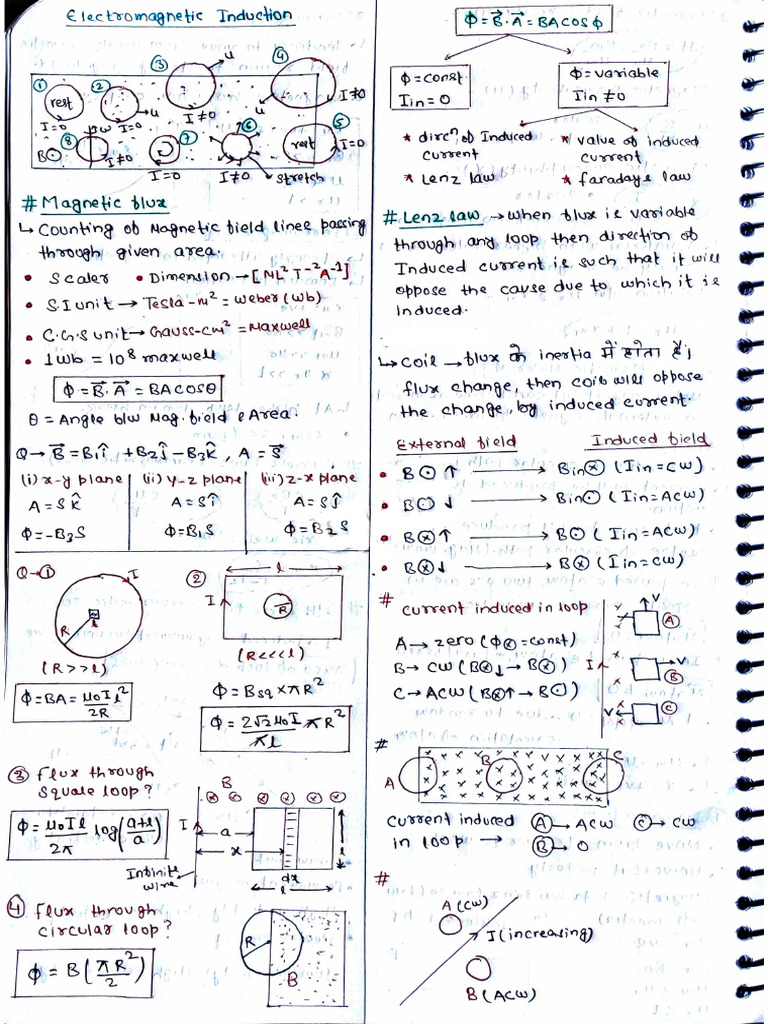 Electromagnetic Induction
① rest I=0
② I=0 u
③ u I≠0
④ u I≠0
⑤ rest I=0
⑥ I≠0 stretch
⑦ I=0
⑧ ω I≠0
B⊙
# Magnetic flux
↳ Counting of Magnetic field lines passing
through given area.
• Scaler • Dimension → [ML²T⁻²A⁻¹]
• S.I unit → Tesla-m² = weber (wb)
• C.G.S unit → Gauss-cm² = Maxwell
• 1wb = 10⁸ maxwell
ϕ = B⃗.A⃗ = BACOSθ
θ = Angle b/w Mag. field & Area.
Q → B⃗ = B₁î + B₂ĵ - B₃k̂, A = S⃗
(i) x-y plane
A = S k̂
ϕ = -B₃S
(ii) y-z plane
A = S î
ϕ = B₁S
(iii) z-x plane
A = S ĵ
ϕ = B₂S
Q → ①
I
R
l
(R>>l)
ϕ = BA = μ₀Il²/2R
②
l
I
R
(R<<<l)
ϕ = Bsq × πR²
ϕ = 2√2 μ₀I/πl πR²
③ Flux through
square loop?
ϕ = μ₀Il/2π log(a+l/a)
B
I
a
x
l
dx
l
Infinite
wire
④ Flux through
circular loop?
ϕ = B(πR²/2)
R
B
ϕ = B⃗.A⃗ = BACOSϕ
ϕ = const.
Iin = 0
ϕ = variable
Iin ≠ 0
* dircⁿ of Induced
current
* Lenz law
* value of induced
current
* faradays law
# Lenz law → when flux is variable
through any loop then direction of
Induced current is such that it will
oppose the cause due to which it is
Induced.
↳ Coil → flux के inertia में होता है।
flux change, then coil will oppose
the change, by induced current.
External field Induced field
• B⊙↑ → Bin⊗ (Iin = CW)
• B⊙↓ → Bin⊙ (Iin = ACW)
• B⊗↑ → B⊙ (Iin = ACW)
• B⊗↓ → B⊗ (Iin = CW)
# current induced in loop
A → zero (ϕ⊗ = const)
B → CW (B⊗↓ → B⊗)
C → ACW (B⊗↑ → B⊙)
I
V
A
V
B
V
C
#
A
B
C
current induced
in loop →
Ⓐ → ACW Ⓒ → CW
Ⓑ → 0
#
A (CW)
I (increasing)
B (ACW)